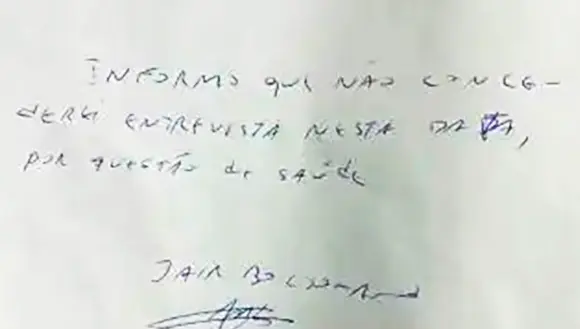 INFORMO que NÃO CONCE-
derei ENTREVISTA NESTA DATA,
por questão de saúde
JAIR BOLSONARO